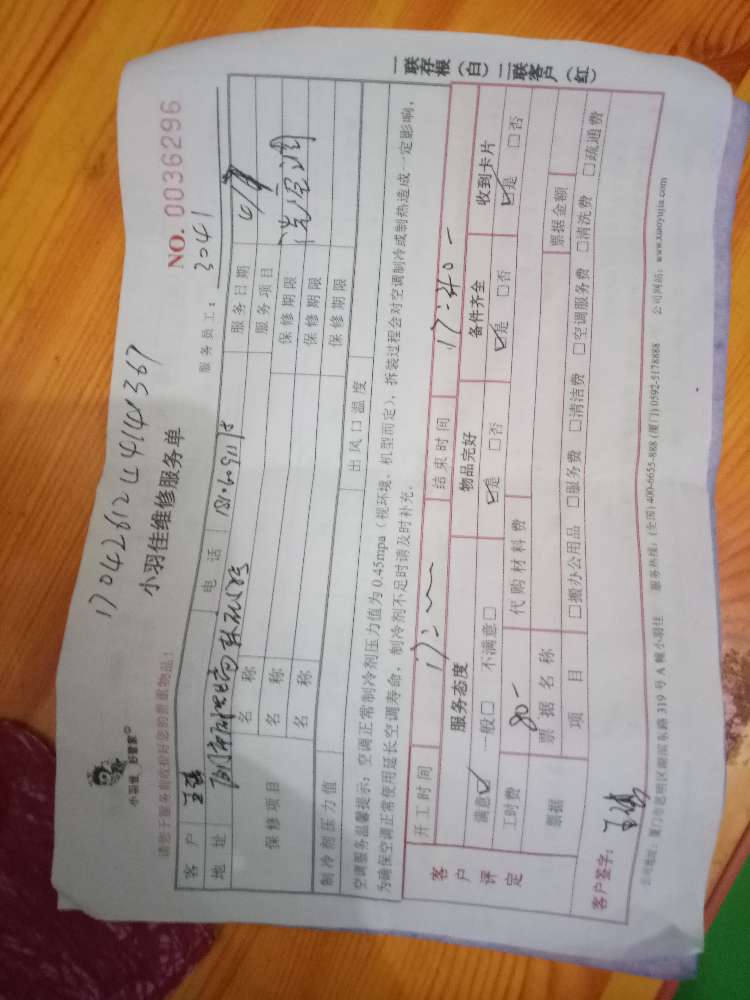 17042612441441367
小羽佳 好管家
小羽佳维修服务单
NO. 0036296
请您于服务前收拾好您的贵重物品！
服务员工： 3041
客户
电话
服务日期
地址
服务项目 洗空调
保修项目
名称
保修期限
名称
保修期限
名称
保修期限
制冷剂压力值
出风口温度
空调服务温馨提示：空调正常制冷剂压力值为0.45mpa（视环境、机型而定），拆装过程会对空调制冷或制热造成一定影响，
为确保空调正常使用延长空调寿命，制冷剂不足时请及时补充。
一联存根（白） 二联客户（红）
客户评定
开工时间
结束时间 17:40
服务态度
物品完好
备件齐全
收到卡片
满意☑ 一般□ 不满意□
☑是 □否
☑是 □否
☑是 □否
工时费 80-
代购材料费
票据
票据名称
票据金额
项目
□搬办公用品 □服务费 □清洁费 □空调服务费 □清洗费 □疏通费
客户签字：
公司地址：厦门市思明区湖滨东路319号A幢小羽佳 服务热线：(全国)400-6655-888 (厦门)0592-5178888 公司网站：www.xiaoyujia.com